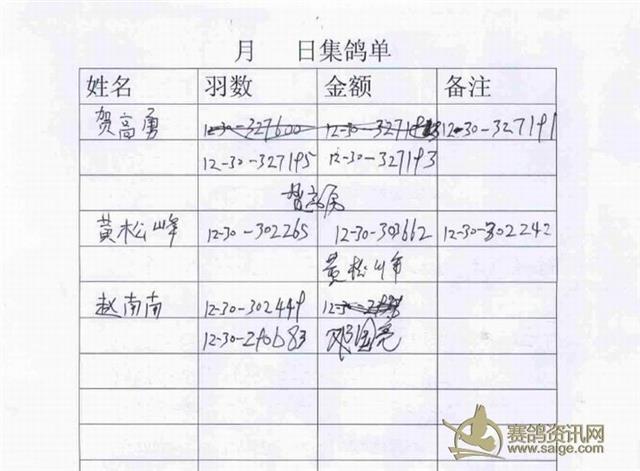 月 日集鸽单
姓名 羽数 金额 备注
贺高勇 12-30-327600 12-30-327191
12-30-327195 12-30-327193
贺高勇
黄松峰 12-30-302265 12-30-302662 12-30-302242
黄松峰
赵南南 12-30-302449
12-30-290683 邓国亮
赛鸽资讯网
www.saige.com